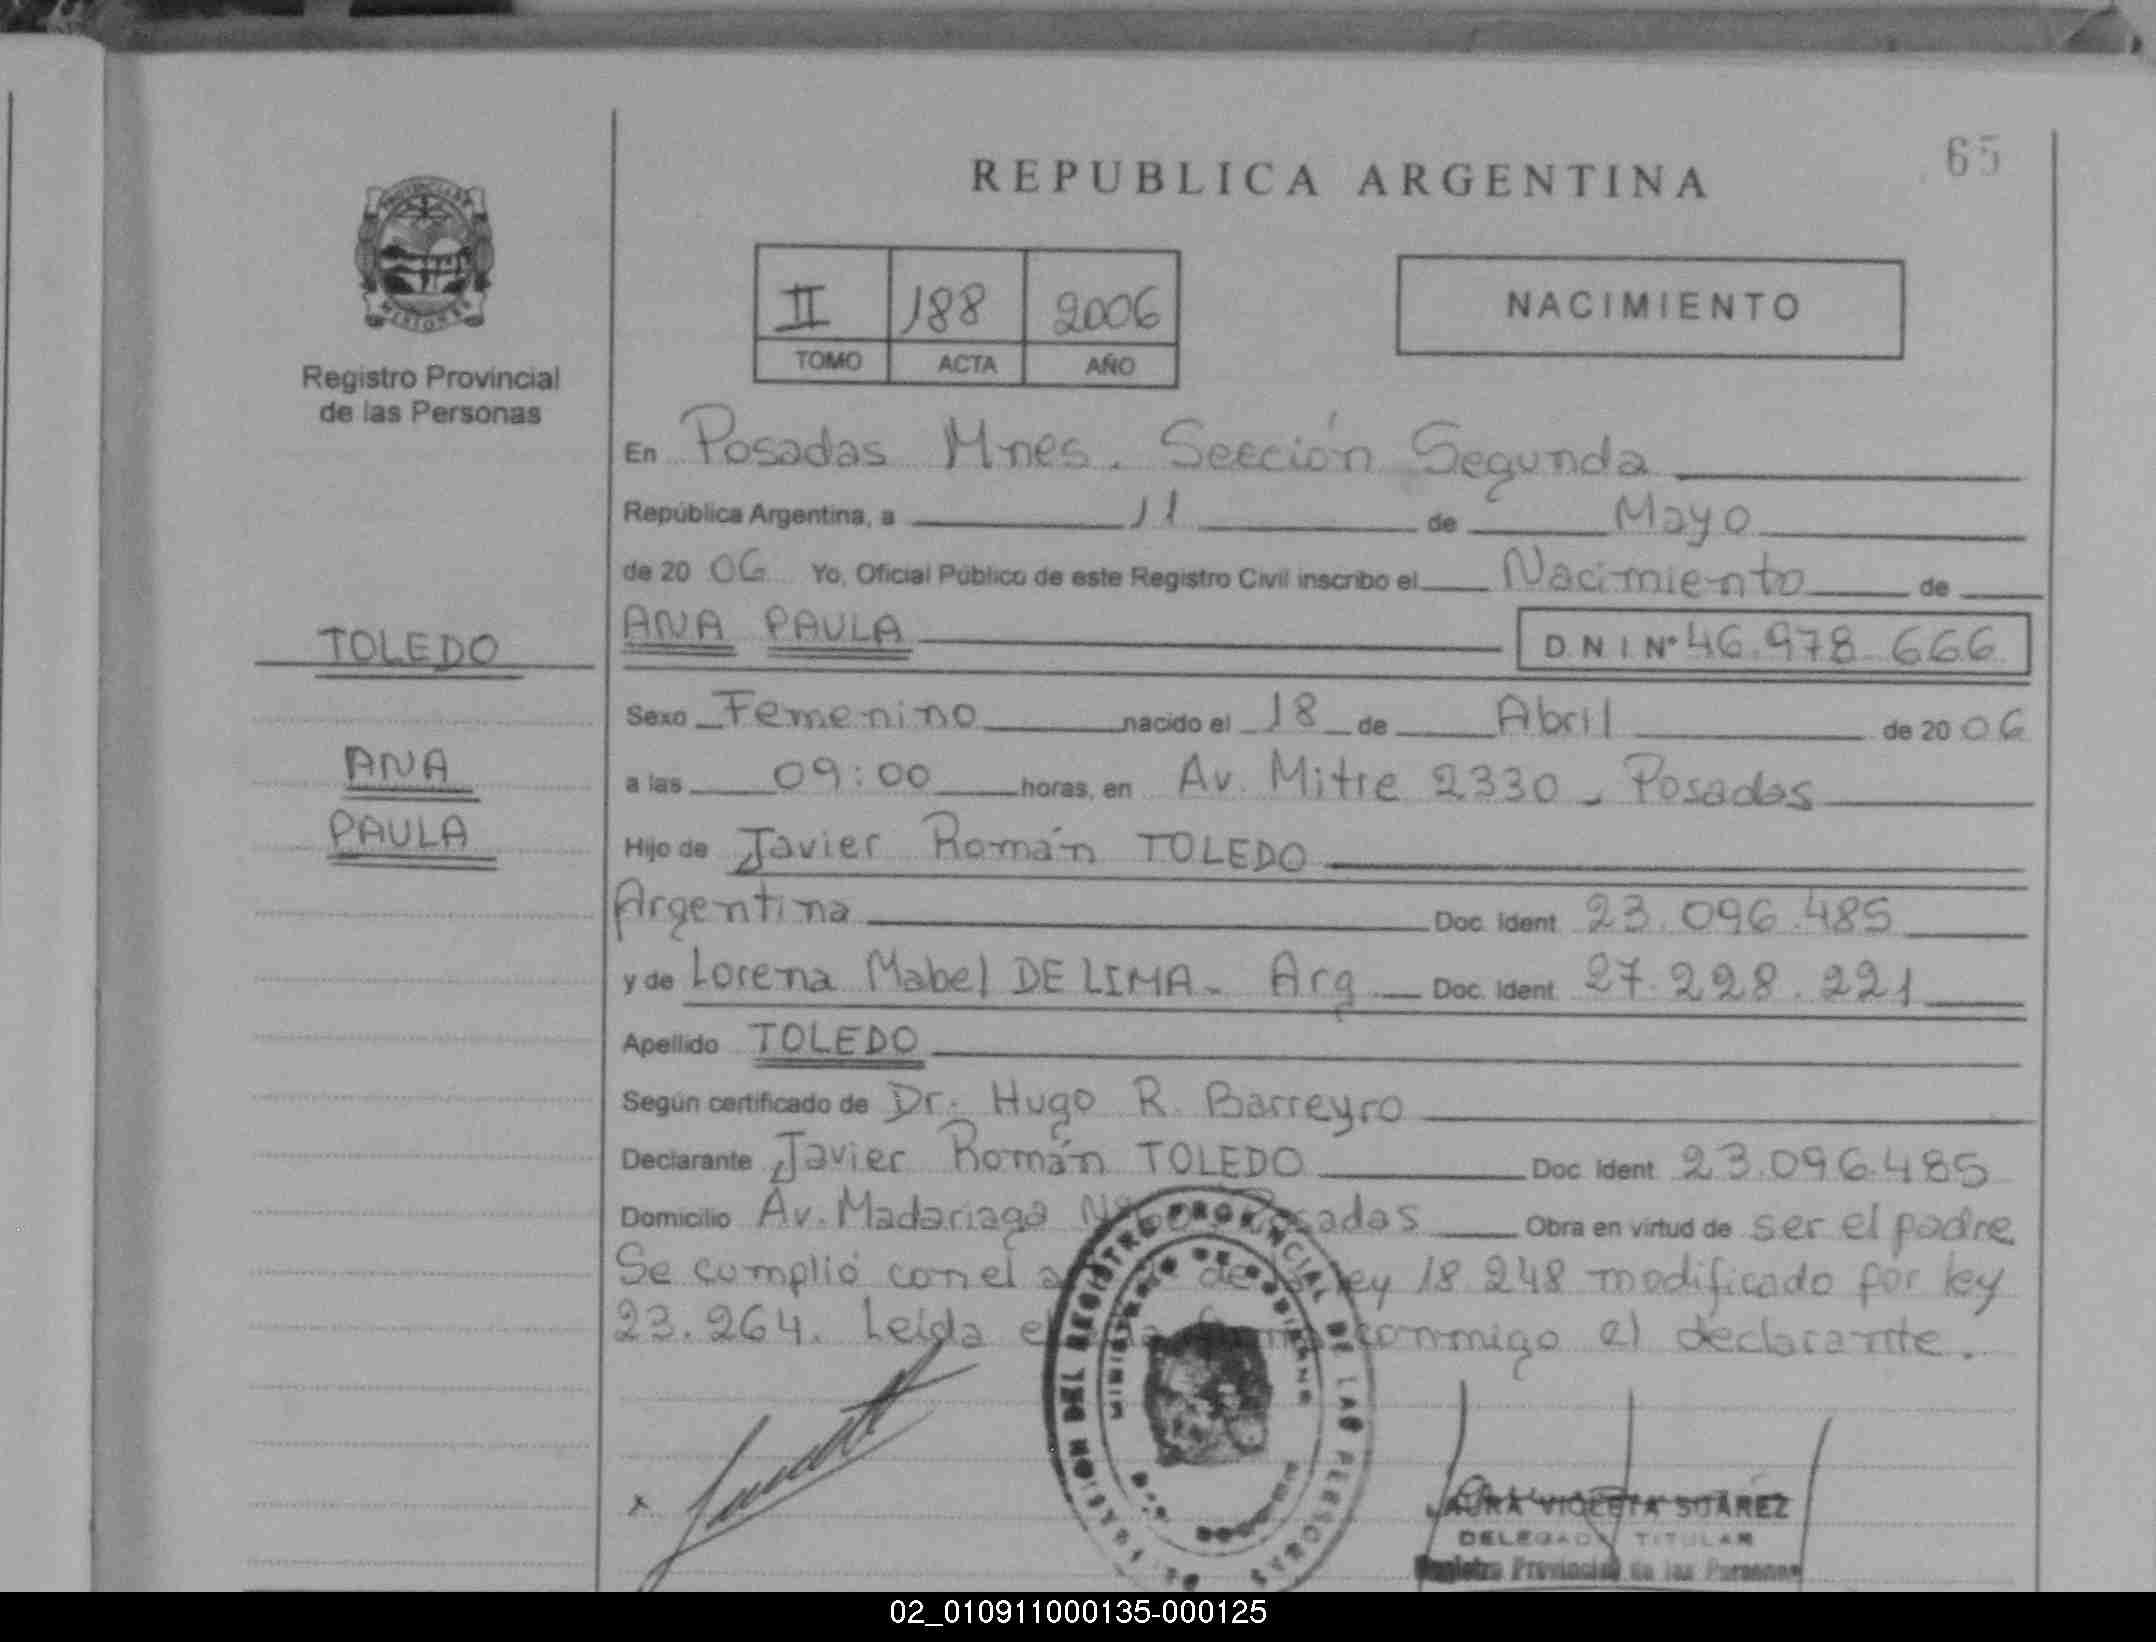 65
REPUBLICA ARGENTINA
PROVINCIA DE
MISIONES
Registro Provincial
de las Personas
II 188 2006
TOMO ACTA AÑO
NACIMIENTO
En Posadas Mnes. Sección Segunda
República Argentina, a 11 de Mayo
de 20 06 Yo, Oficial Público de este Registro Civil inscribo el Nacimiento de
TOLEDO
ANA PAULA
D.N.I. Nº 46.978.666
Sexo Femenino nacido el 18 de Abril de 20 06
ANA
PAULA
a las 09:00 horas, en Av. Mitre 2330 - Posadas
Hijo de Javier Román TOLEDO
Argentina Doc. Ident. 23.096.485
y de Lorena Mabel DE LIMA - Arg Doc. Ident. 27.228.221
Apellido TOLEDO
Según certificado de Dr. Hugo R. Barreyro
Declarante Javier Román TOLEDO Doc. Ident. 23.096.485
Domicilio Av. Madariaga Posadas Obra en virtud de ser el padre
Se cumplió con el de ley 18.248 modificado por ley
23.264. Leída conmigo el declarante.
DEL REGISTRO PROVINCIAL DE LAS PERSONAS
MINISTERIO DE GOBIERNO
x
LAURA VIOLETA SUAREZ
DELEGADA TITULAR
Registro Provincial de las Personas
02_010911000135-000125